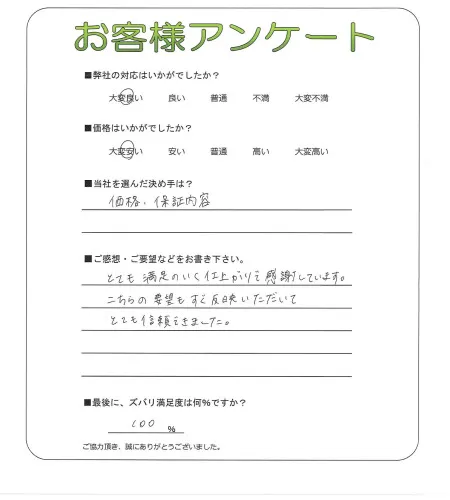 お客様アンケート
■弊社の対応はいかがでしたか？
大変良い 良い 普通 不満 大変不満
■価格はいかがでしたか？
大変安い 安い 普通 高い 大変高い
■当社を選んだ決め手は？
価格、保証内容
■ご感想・ご要望などをお書き下さい。
とても 満足のいく仕上がりで感謝しています。
こちらの 要望もすぐ反映いただいて
とても信頼できました。
■最後に、ズバリ満足度は何%ですか？
100 %
ご協力頂き、誠にありがとうございました。